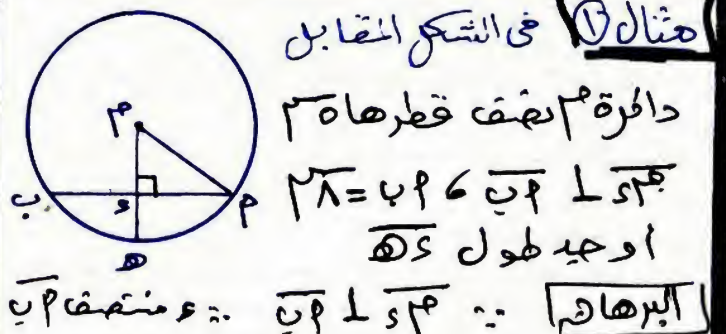 مثال ① فى الشكل المقابل
دائرة م نصف قطرها ٥ سم
م د ⊥ أ ب ، أ ب = ٨ سم
أوجد طول د هـ
البرهان ∵ م د ⊥ أ ب ∴ د منتصف أ ب
م
أ
د
ب
هـ